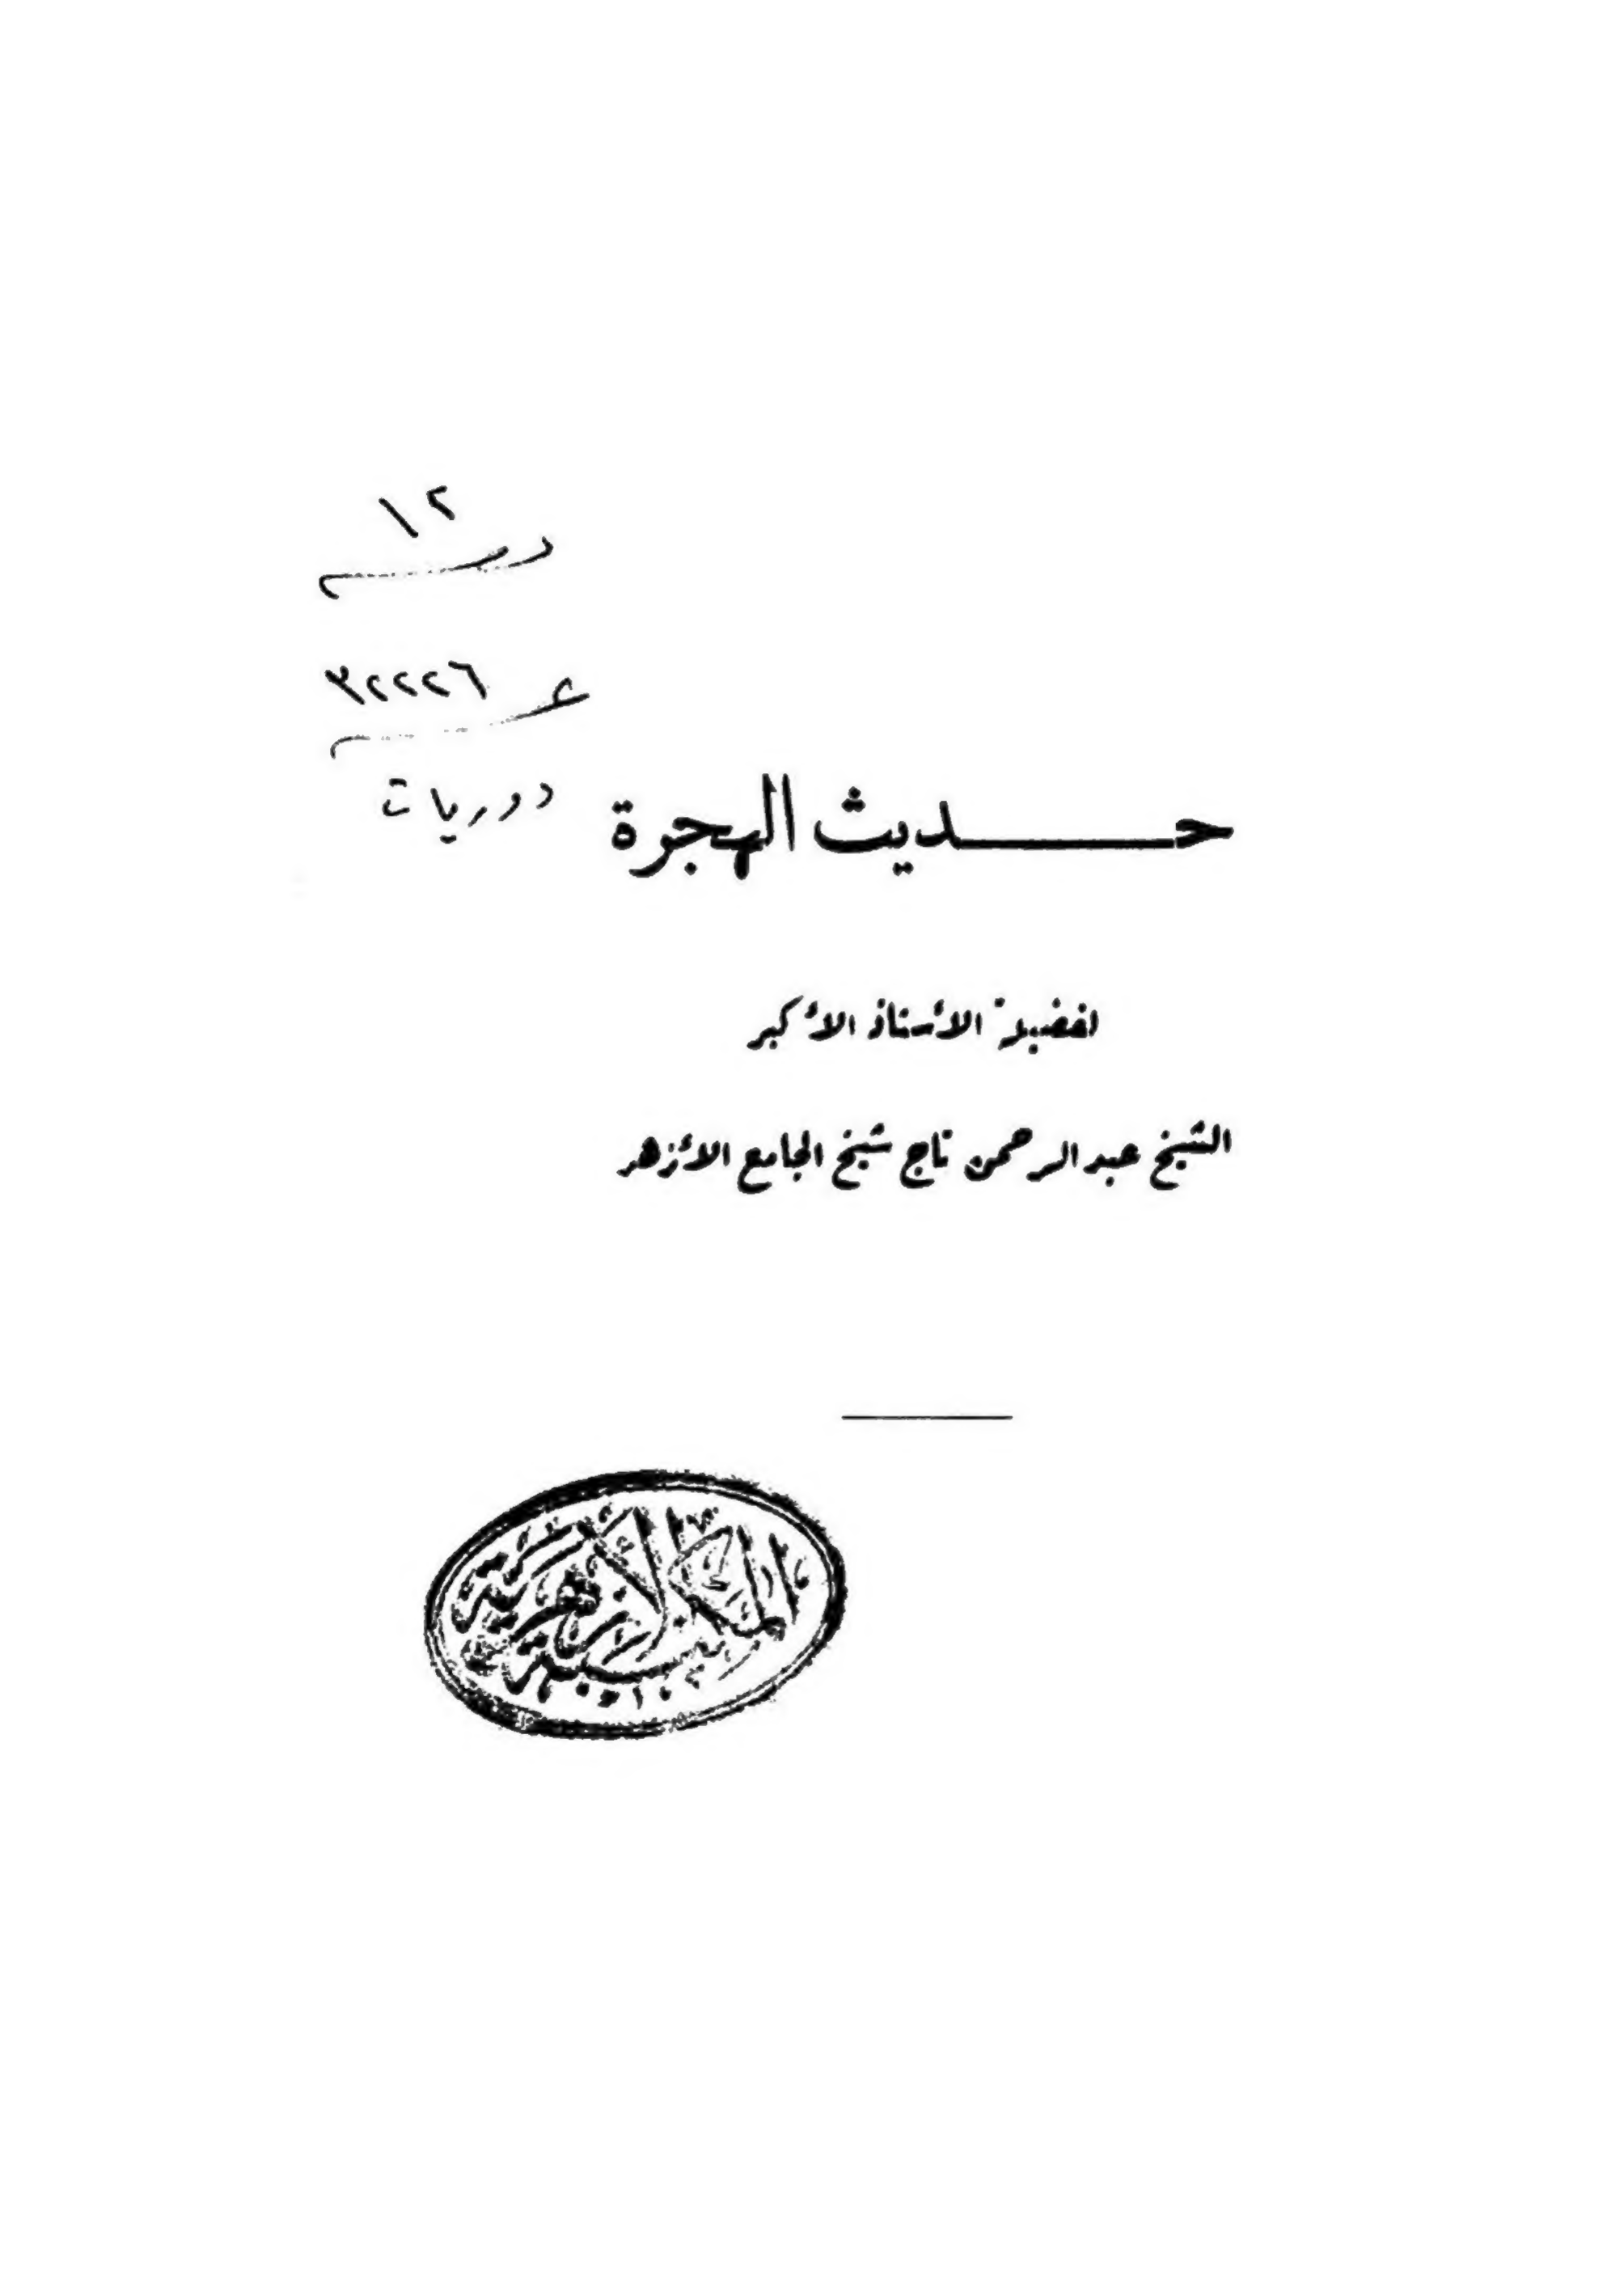 ١٢
در
ع ٣٢٢٢٦
دوريات
حديث الهجرة
لفضيلة الأستاذ الأكبر
الشيخ عبد الرحمن تاج شيخ الجامع الأزهر